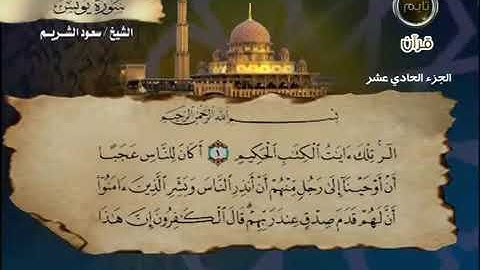 سورة يونس
الشيخ / سعود الشريم
تايم
قرآن
الجزء الحادي عشر
بِسْمِ اللَّهِ الرَّحْمَٰنِ الرَّحِيمِ
الٓر ۚ تِلْكَ ءَايَٰتُ ٱلْكِتَٰبِ ٱلْحَكِيمِ ١ أَكَانَ لِلنَّاسِ عَجَبًا
أَنْ أَوْحَيْنَآ إِلَىٰ رَجُلٍ مِّنْهُمْ أَنْ أَنذِرِ ٱلنَّاسَ وَبَشِّرِ ٱلَّذِينَ ءَامَنُوٓا۟
أَنَّ لَهُمْ قَدَمَ صِدْقٍ عِندَ رَبِّهِمْ ۗ قَالَ ٱلْكَٰفِرُونَ إِنَّ هَٰذَا